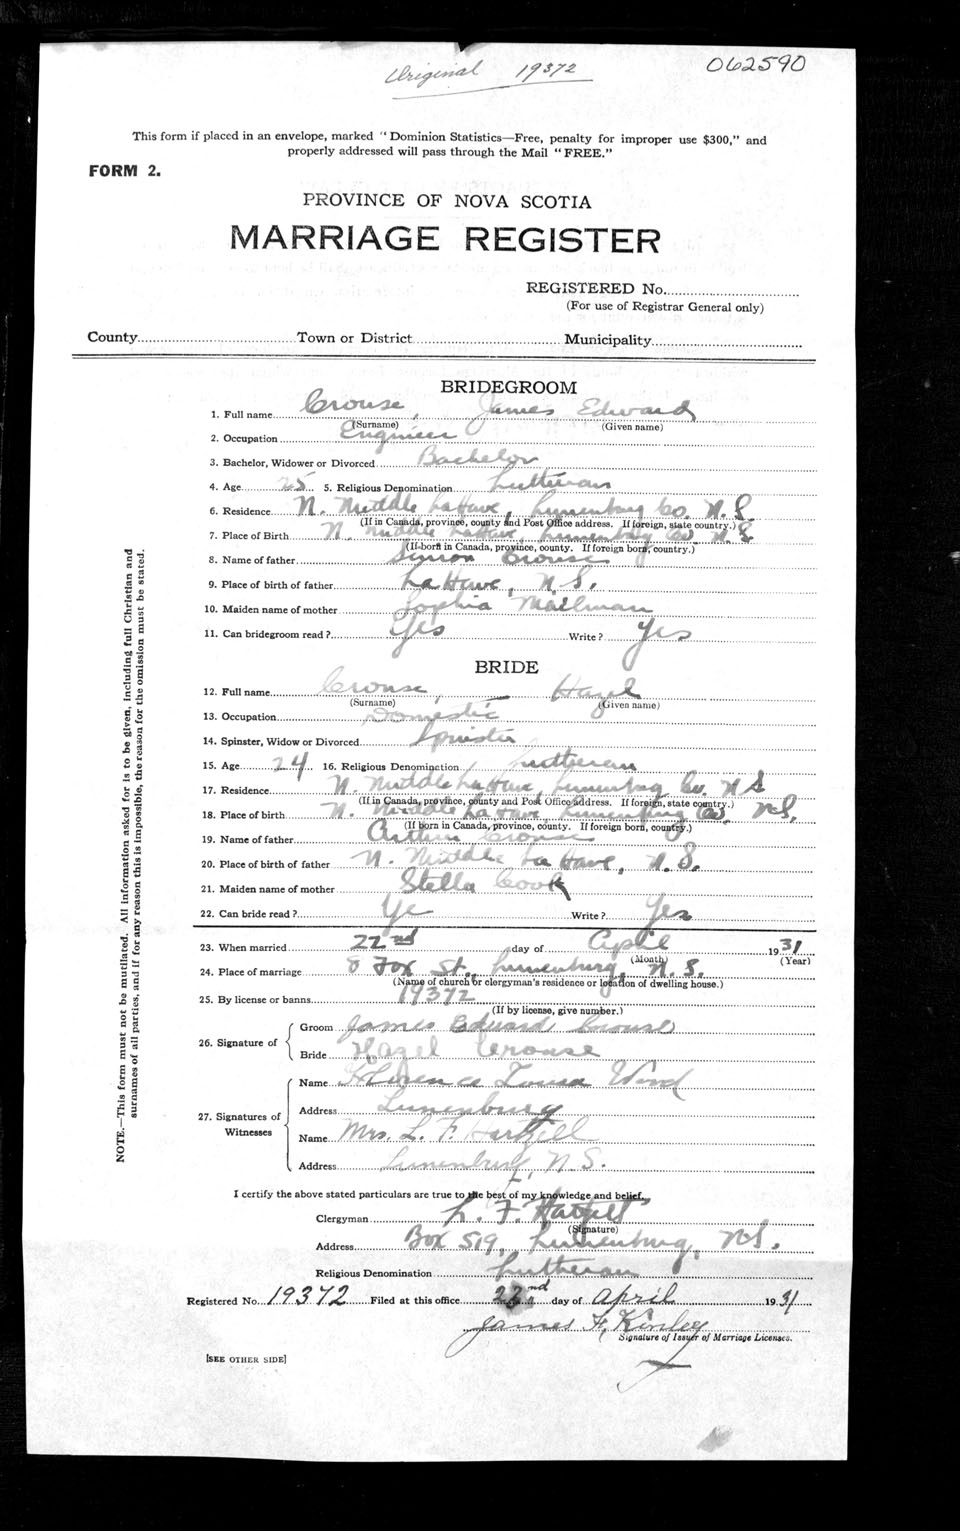 Original 19372
062590
This form if placed in an envelope, marked "Dominion Statistics—Free, penalty for improper use $300," and
properly addressed will pass through the Mail "FREE."
FORM 2.
PROVINCE OF NOVA SCOTIA
MARRIAGE REGISTER
REGISTERED No.
(For use of Registrar General only)
County Town or District Municipality
BRIDEGROOM
1. Full name Crouse, James Edward
(Surname) (Given name)
2. Occupation Engineer
3. Bachelor, Widower or Divorced Bachelor
4. Age 25 5. Religious Denomination Lutheran
6. Residence N. Middle LaHave, Lunenburg Co. N.S.
(If in Canada, province, county and Post Office address. If foreign, state country.)
7. Place of Birth N. Middle LaHave, Lunenburg Co. N.S.
(If born in Canada, province, county. If foreign born, country.)
8. Name of father Crouse
9. Place of birth of father LaHave, N.S.
10. Maiden name of mother Sophia Mailman
11. Can bridegroom read? Yes Write? Yes
BRIDE
12. Full name Crouse, — Hazel
(Surname) (Given name)
13. Occupation Domestic
14. Spinster, Widow or Divorced Spinster
15. Age 24 16. Religious Denomination Lutheran
17. Residence N. Middle LaHave, Lunenburg Co. N S
(If in Canada, province, county and Post Office address. If foreign, state country.)
18. Place of birth N. Middle LaHave, Lunenburg Co. N.S.
(If born in Canada, province, county. If foreign born, country.)
19. Name of father Arthur Crouse
20. Place of birth of father N. Middle La Have, N.S.
21. Maiden name of mother Stella Cook
22. Can bride read? Ye Write? Yes
23. When married 22nd day of April 1931
(Month) (Year)
24. Place of marriage 8 Fox St., Lunenburg, N.S.
(Name of church or clergyman's residence or location of dwelling house.)
25. By license or banns 19372
(If by license, give number.)
26. Signature of
Groom James Edward Crouse
Bride Hazel Crouse
27. Signatures of Witnesses
Name Florence Louisa Wood
Address Lunenburg
Name Mrs. L. F. Hartzell
Address Lunenburg, N.S.
I certify the above stated particulars are true to the best of my knowledge and belief,
Clergyman L. F. Hartzell
(Signature)
Address Box 519, Lunenburg, N.S.
Religious Denomination Lutheran
Registered No. 19372 Filed at this office 22nd day of April 1931
James F. Kinley
Signature of Issuer of Marriage Licenses.
[SEE OTHER SIDE]
NOTE.—This form must not be mutilated. All information asked for is to be given, including full Christian and
surnames of all parties, and if for any reason this is impossible, the reason for the omission must be stated.